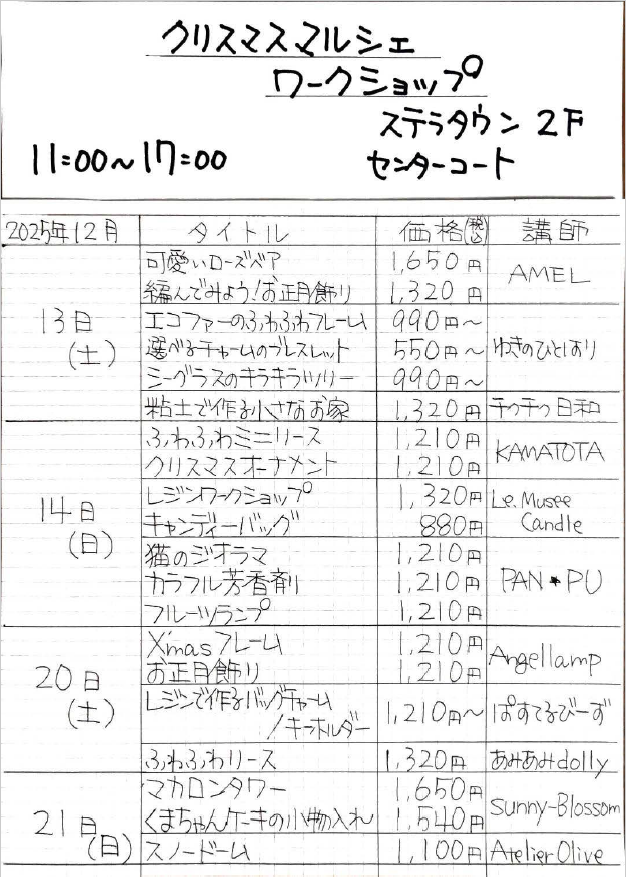 クリスマスマルシェ
ワークショップ
ステラタウン 2F
11:00～17:00 センターコート
2025年12月 タイトル 価格(税込) 講師
13日(土) 可愛いローズベア 1,650円 AMEL
編んでみよう!お正月飾り 1,320円
エコファーのふわふわフレーム 990円～ わきのひとはり
選べるチャームのブレスレット 550円～
シーグラスのキラキラツリー 990円～
粘土で作る小さなお家 1,320円 チクチク日和
14日(日) ふわふわミニリース 1,210円 KAMATOTA
クリスマスオーナメント 1,210円
レジンワークショップ 1,320円 Le.Musee Candle
キャンディーバッグ 880円
猫のジオラマ 1,210円 PAN★PU
カラフル芳香剤 1,210円
フルーツランプ 1,210円
20日(土) X'masフレーム 1,210円 Angellamp
お正月飾り 1,210円
レジンで作るバッグチャーム
/キーホルダー 1,210円～ ぱすてるびーず
ふわふわリース 1,320円 あみあみdolly
21日(日) マカロンタワー 1,650円 Sunny-Blossom
くまちゃんケーキの小物入れ 1,540円
スノードーム 1,100円 Atelier Olive